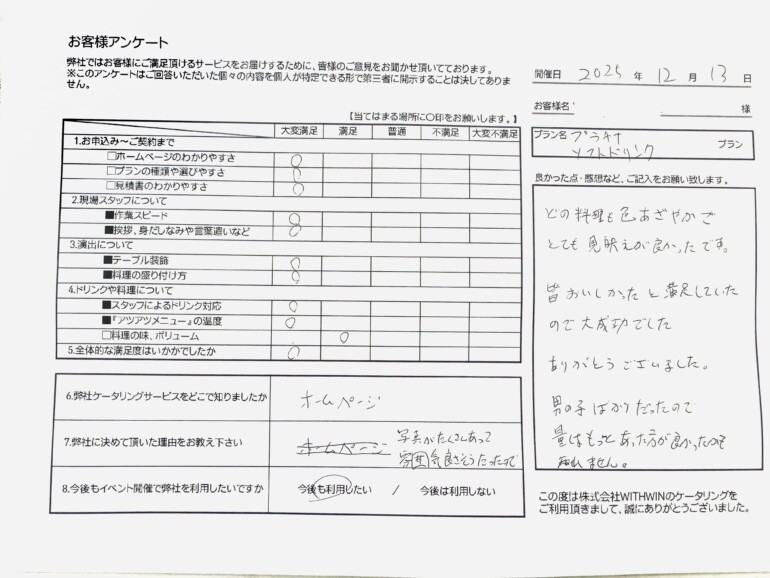 お客様アンケート
弊社ではお客様にご満足頂けるサービスをお届けするために、皆様のご意見をお聞かせ頂いております。
※このアンケートはご回答いただいた個々の内容を個人が特定できる形で第三者に開示することは決してありま
せん。
開催日 2025 年 12 月 13 日
お客様名 様
プラン名 プラチナ
ソフトドリンク プラン
【当てはまる場所に○印をお願いします。】
大変満足 満足 普通 不満足 大変不満足
1.お申込み～ご契約まで
□ホームページのわかりやすさ ○
□プランの種類や選びやすさ ○
□見積書のわかりやすさ ○
2.現場スタッフについて
■作業スピード ○
■挨拶、身だしなみや言葉遣いなど ○
3.演出について
■テーブル装飾 ○
■料理の盛り付け方 ○
4.ドリンクや料理について
■スタッフによるドリンク対応 ○
■『アツアツメニュー』の温度 ○
□料理の味、ボリューム ○
5.全体的な満足度はいかがでしたか ○
6.弊社ケータリングサービスをどこで知りましたか ホームページ
7.弊社に決めて頂いた理由をお教え下さい ホームページ 写真がたくさんあって
雰囲気良さそうだったので
8.今後もイベント開催で弊社を利用したいですか 今後も利用したい / 今後は利用しない
良かった点・感想など、ご記入をお願い致します。
どの料理も色あざやかで
とても見映えが良かったです。
皆おいしかったと満足していた
ので大成功でした
ありがとうございました。
男の子ばかりだったので
量はもっとあった方が良かったかも
しれません。
この度は株式会社WITHWINのケータリングを
ご利用頂きまして、誠にありがとうございました。